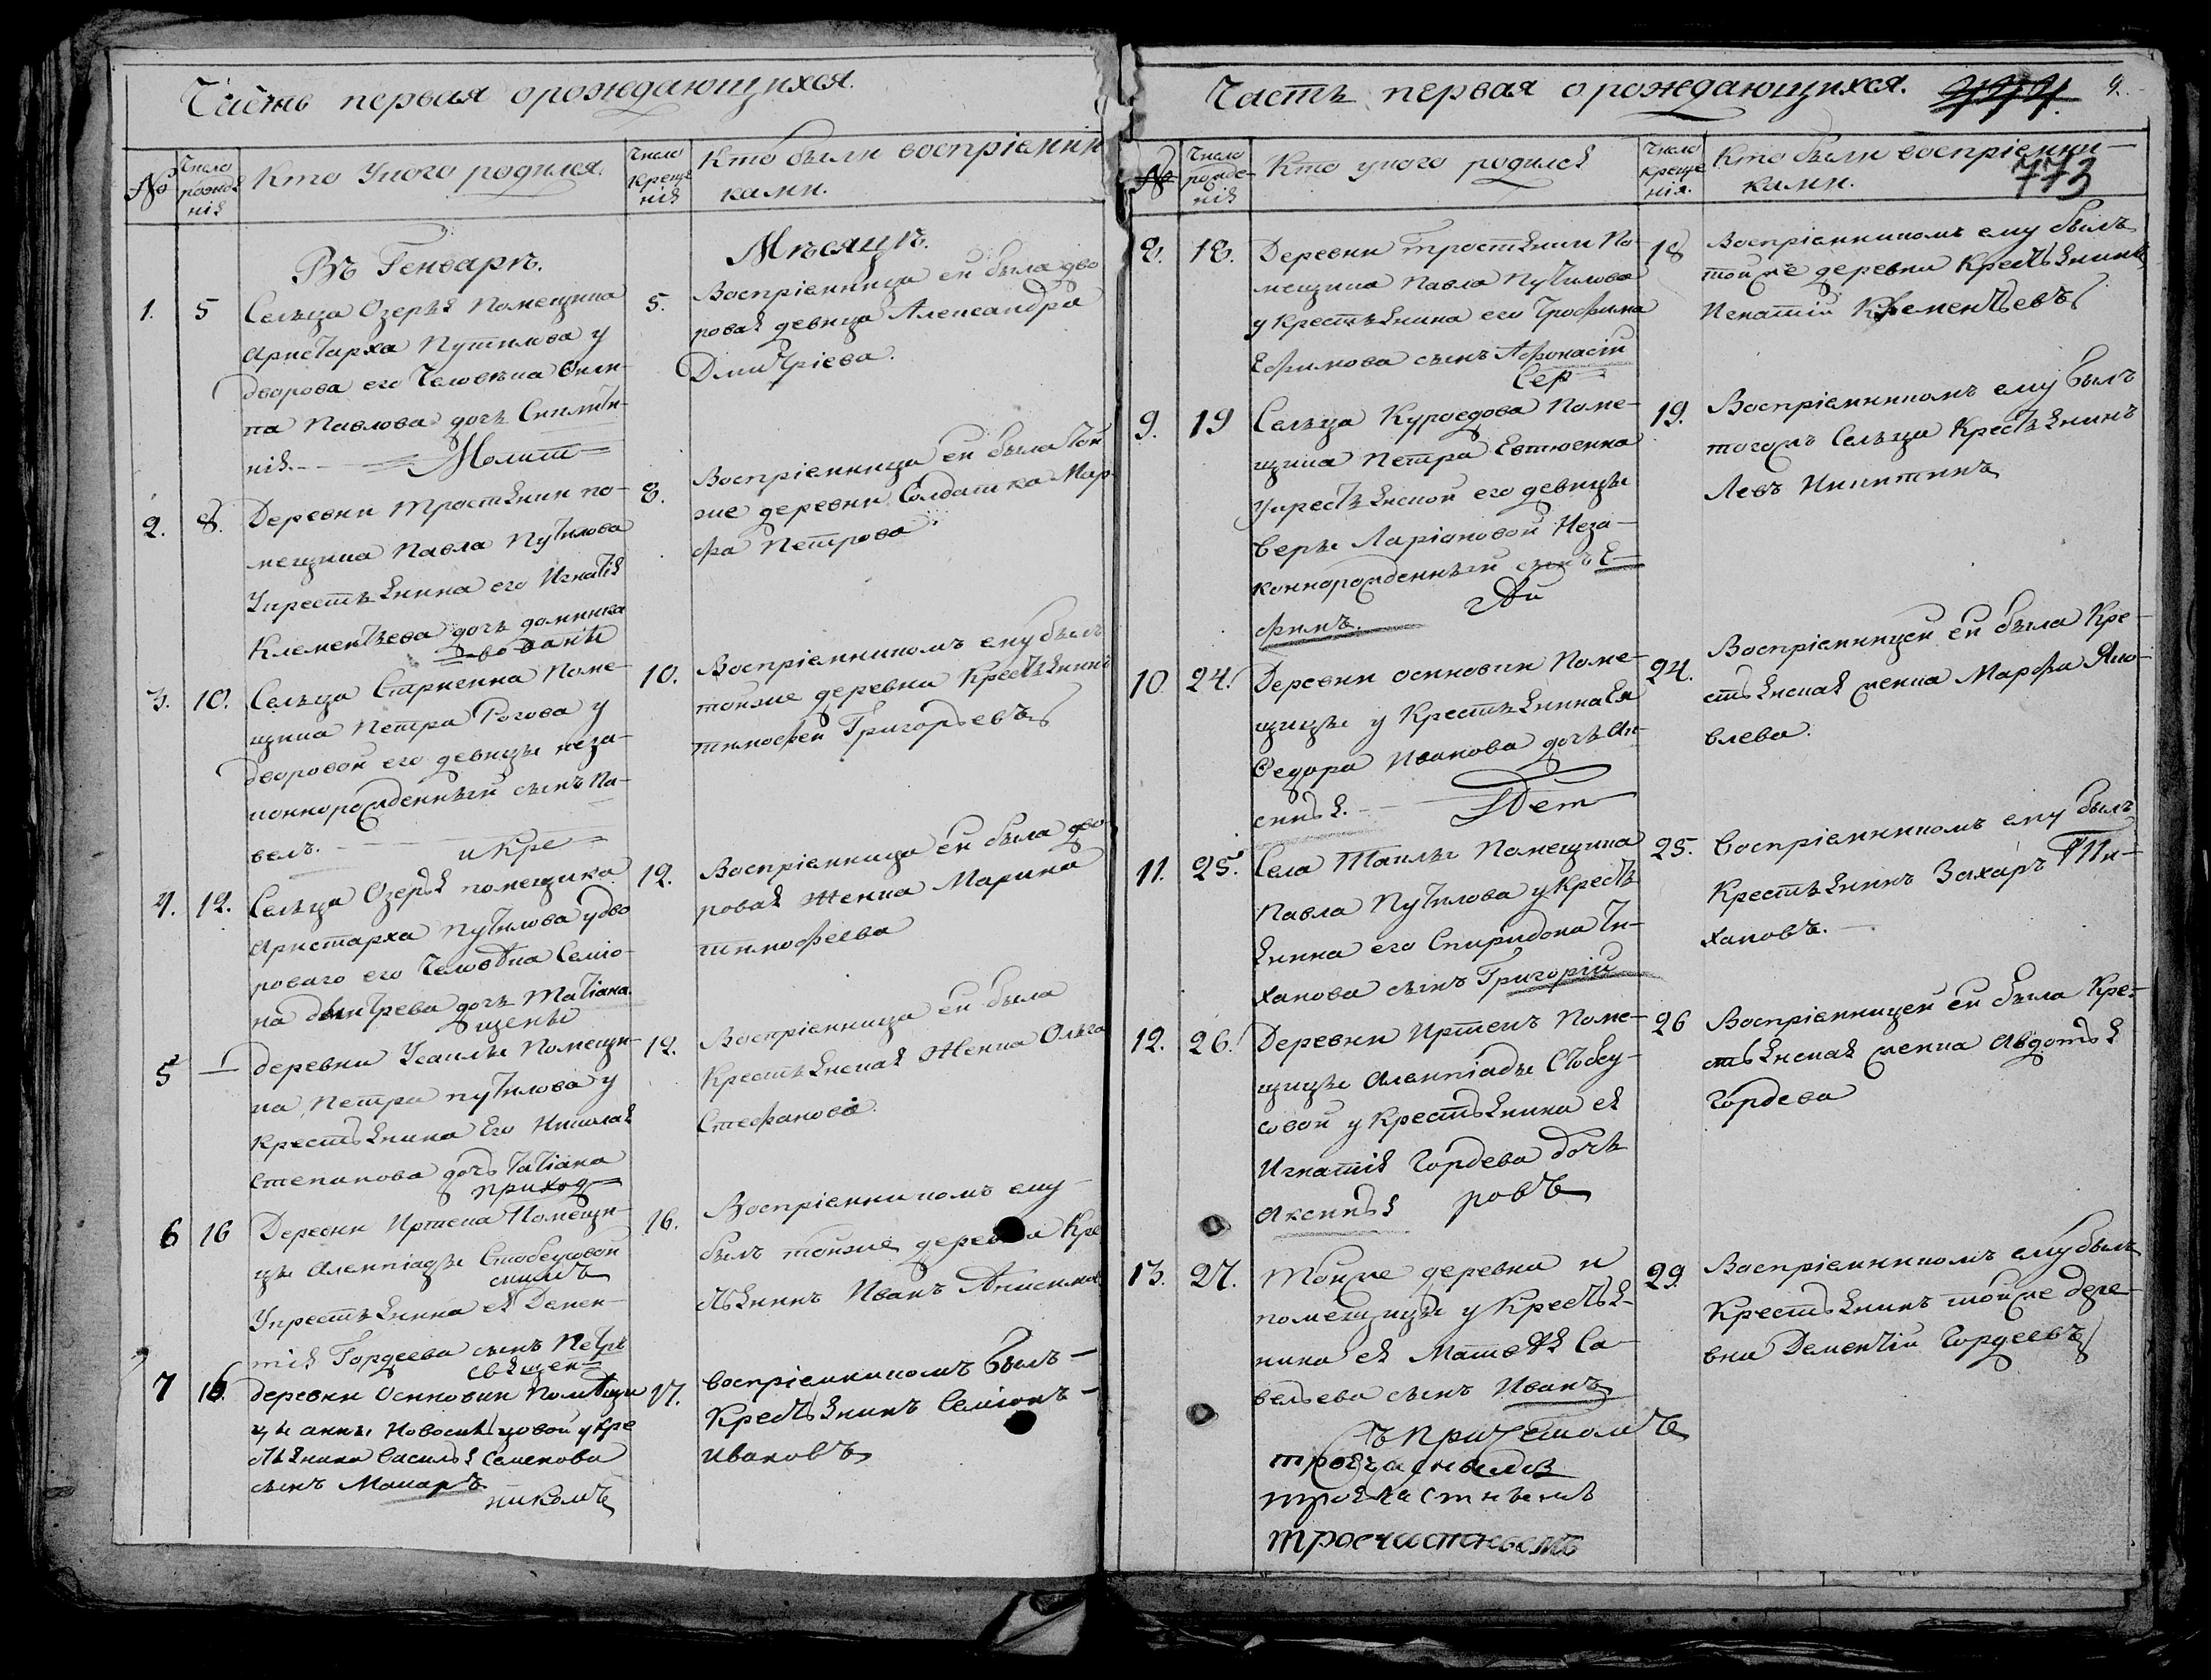 Часть первая орождающихся.
№
Число рожде нія
Кто Укого родился.
Число креще нія
Кто были воспріемни
ками.
Въ Генварѣ.
Мѣсяцѣ.
1.
5
Сельца Озерья Помещика
Аристарха Путилова у
дворова его Человѣка Фили-
па Павлова дочь Склити-
кія.
Молит
5.
Воспріемница ей была дво
ровая девица Александра
Дмитріева.
2.
8.
Деревни Тростянки по-
мещика Павла Путилова
Укрестьянина его Игнатія
Клементьева дочь домника
вовакіи
8.
Воспріемница ей была той
же деревни Солдатка Мар-
фа Петрова.
3.
10.
Сельца Старкенка Поме-
щика Петра Рогова у
дворовой его девицы неза-
коннорожденный сынъ Па-
велъ.
и Кре
10.
Воспріемникомъ ему былъ
тойже деревни Крестьянинъ
тимофей Григорьевъ
4.
12.
Сельца Озерья помещика
Аристарха Путилова удво
роваго его Человѣка Семіо-
на дмитрева дочь Матіана.
щены
12.
Воспріемница ей была дво-
ровая Женка Марина
тимофеева
5
деревни Усаилы Помещи-
ка Петра путилова у
Крестьянина Его Николая
Степанова дочь Татіана
приход
12.
Воспріемница ей была
Крестьянская Женка Ольга
Стефанова.
6
16
Деревни Иртека Помещи-
цы Алемпіады Стобеусовой
скимъ
Укрестьянина ея Демен-
тія Гордеева сынъ Петръ
священ
16.
Воспріемникомъ ему
былъ тойже деревни Кре
стьянинъ Иванъ Анисимов
7
16.
деревни Осиновки Помѣщи
цы анны Новосильцовой у кре
стьянина Василья Семенова
сынъ Макаръ
никомъ
17.
воспріемникомъ былъ
Крестьянинъ Семіонъ
ивановъ
Часть первая орождающихся.
774.
9.
773
№
Число рожде- нія
Кто укого родился
Число креще нія.
Кто были воспріемни-
ками.
8.
18.
Деревни Тростянки По-
мещика Павла Путилова
у Крестьянина его Трофима
Ефимова сынъ Афонасій
Сер
18
Воспріемникомъ ему былъ
той же деревни Крестьянинъ
Игнатій Клементьевъ
9.
19
Сельца Куроедова Поме-
щика Петра Евтюенка
Укрестьянской его девицы
Веры Ларіоновой Неза-
коннорожденный сынъ Е-
фимъ.
гѢи
19.
Воспріемникомъ ему былъ
тогожъ Сельца Крестьянинъ
Левъ Никитинъ
10
24.
Деревни осиновки Поме-
щицы у Крестьянина Ея
Федора Иванова дочь Ак-
синья.
Дет
24.
Воспріемницей ей была Кре-
стьянская женка Марфа Яко-
влева.
11.
25.
Села Ташлы Помещика
Павла Путилова у Кресть
янина его Спиридона Ти-
ханова сынъ Григорій
25.
Воспріемникомъ ему былъ
Крестьянинъ Захаръ Ти-
хановъ.
12.
26.
Деревни Иртекъ Поме-
щицы Алемпіады Стобеу-
совой у Крестьянина ея
Игнатія Гордева дочь
Аксинья
ровъ
26
Воспріемницей ей была Кре-
стьянская женка Авдотья
Гордева
13.
27.
Тойже деревни и
помещицы у Крестья-
нина ея Матвѣя Са-
вельева сынъ Иванъ
29.
Воспріемникомъ ему былъ
Крестьянинъ тойже дере-
вни Дементій Гордеевъ
съ Причетомъ
троечастнымъ